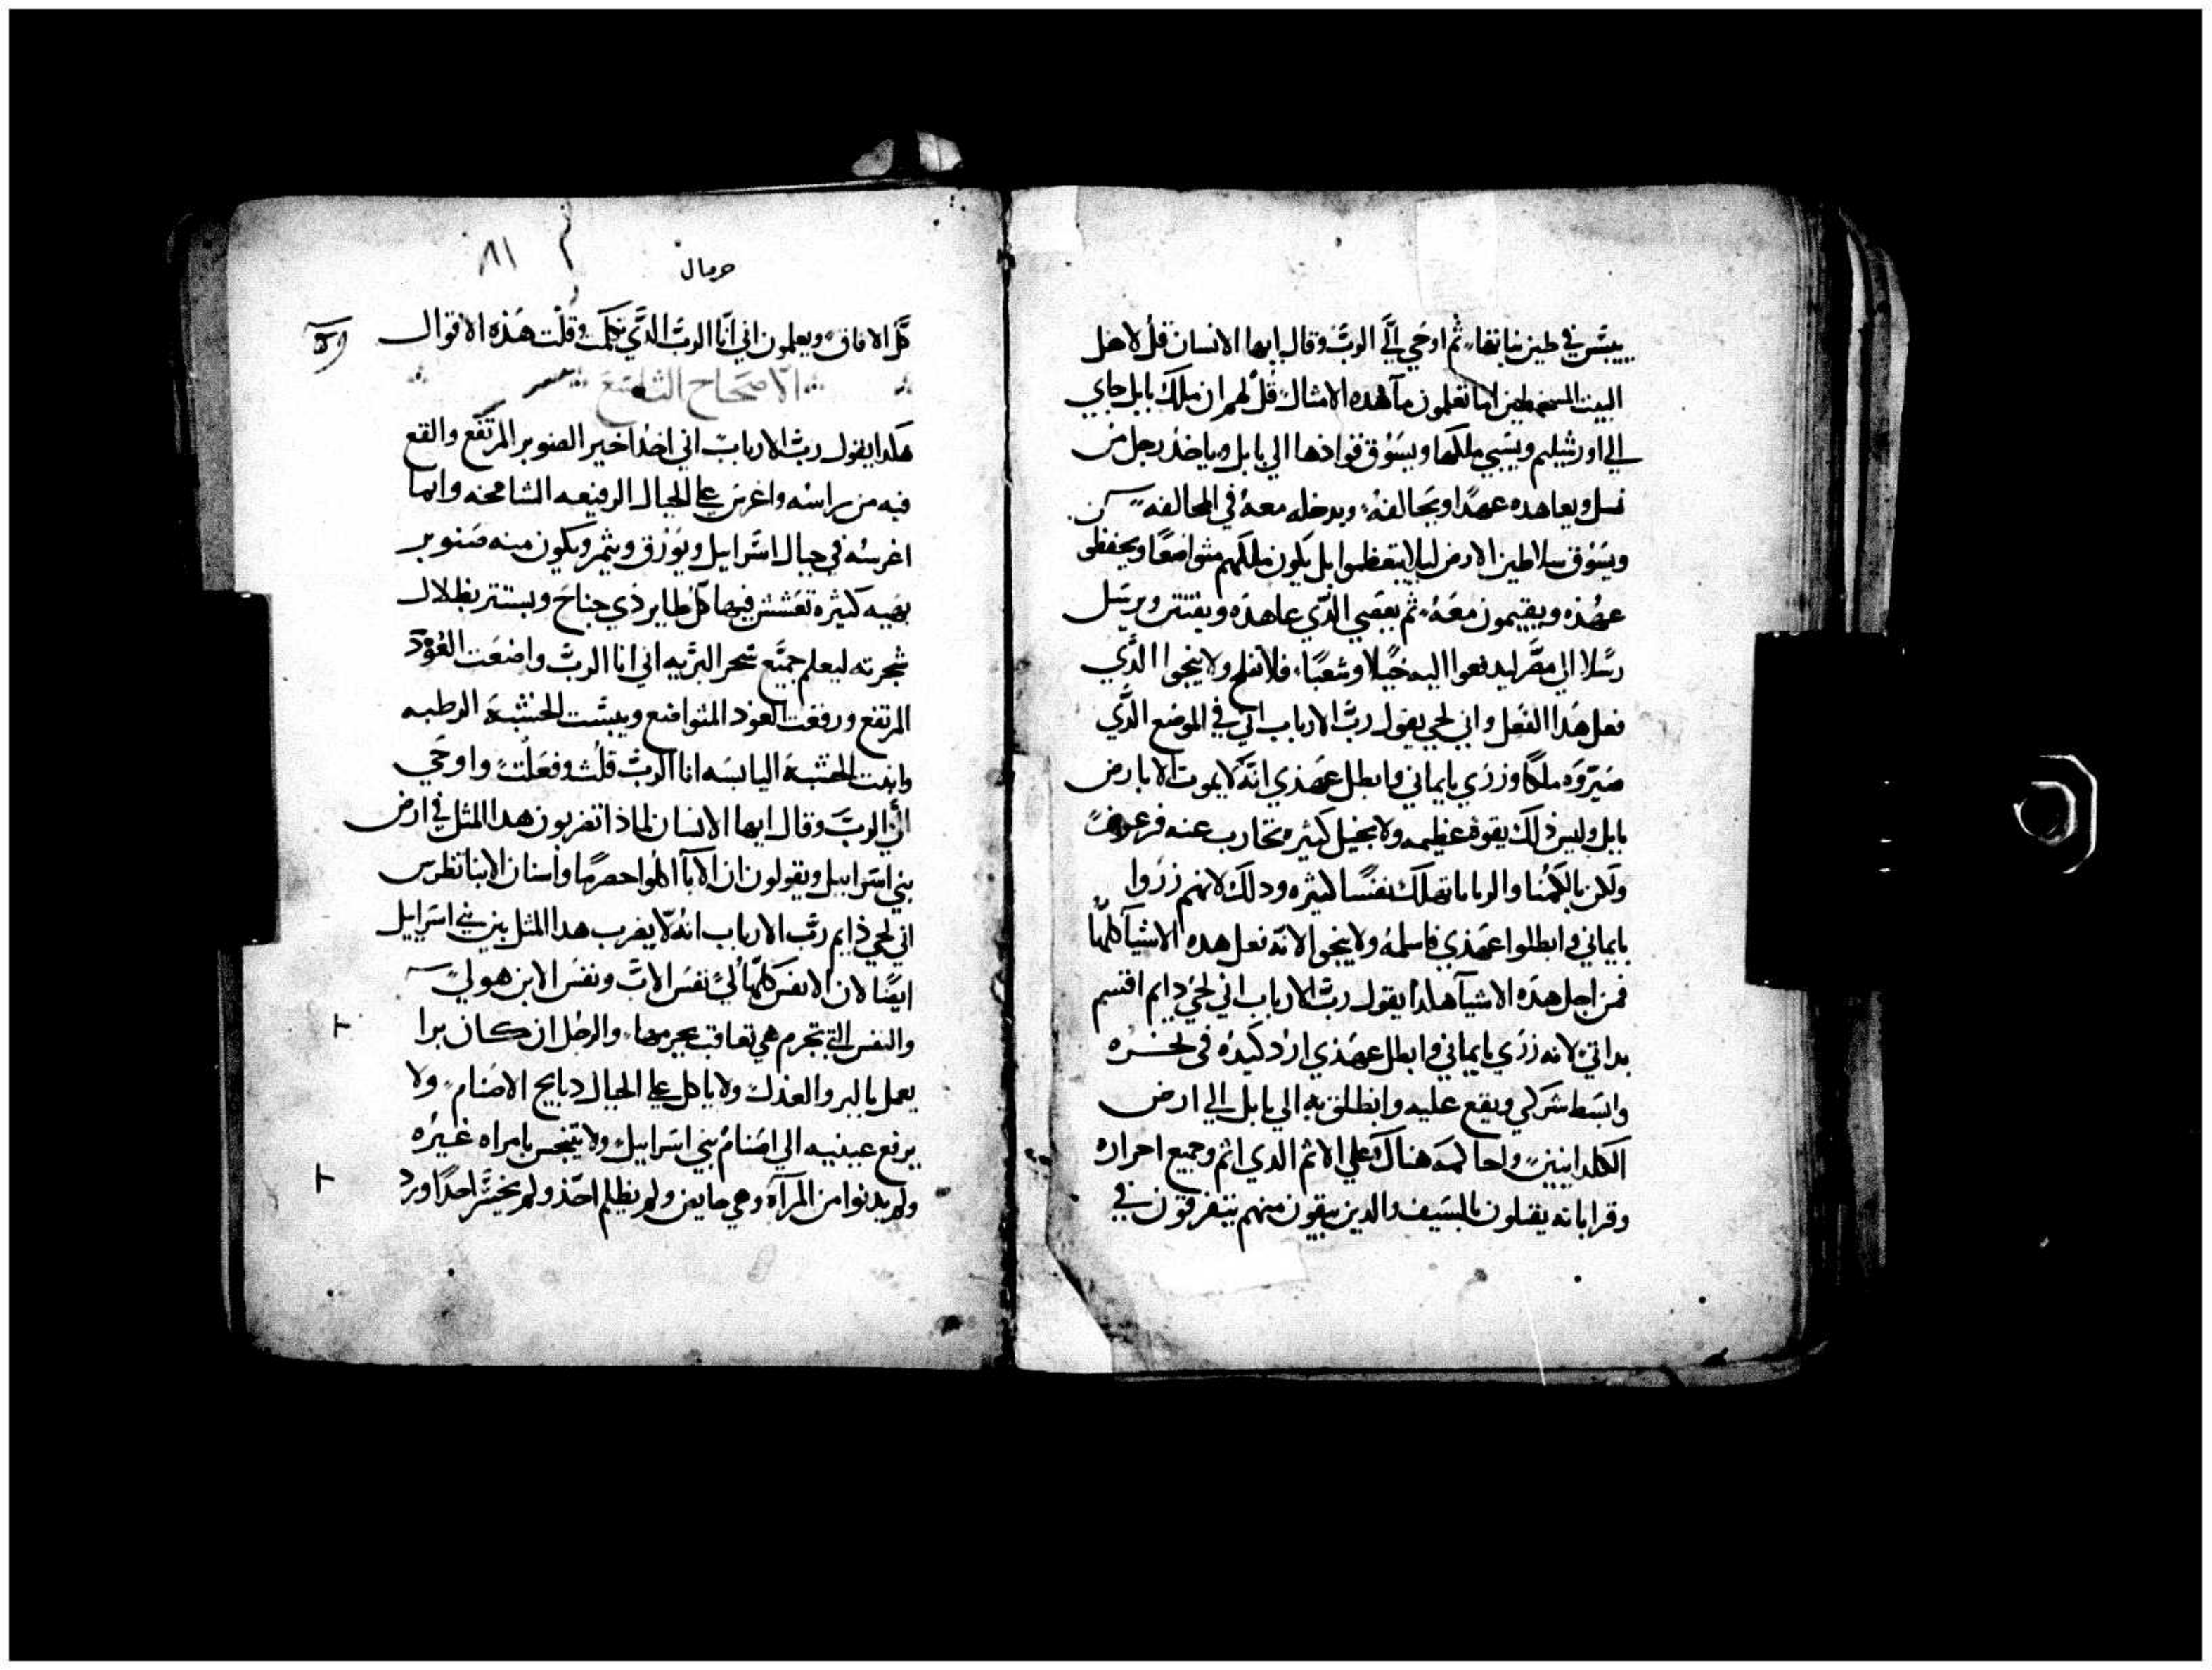 ييبس في طين نباتها ثم اوحي الَّي الربّ وقال ايها الانسان قل لاهل
البيت اما تعلمون ما هده الامثال قل لهم ان ملك بابل جاي
الي اورشليم ويسبي ملكها ويسوق قوادها الي بابل وياخذ رجل من
نسل ويعاهده عهدًا ويحالفه ويدخله معه في المحالفه
ويسوق سلاطين الارض ليلا يتعظموا بل يكون ملكهم متواضعًا ويحفظ
عهده ويقيمون معه ثم يعصي الذي عاهده ويفتتن ويرسل
رسلا الي مصر ليدفعوا اليه خيلا وشعبًا فلا تفلح ولا ينجوا الذّي
فعل هدا الفعل واني لحي يقول ربّ الارباب اني في الموضع الذّي
صيّروه ملكًا وزري بايماني وابطل عهدي انّه لا يموت الا بارض
بابل وليس ذلك بقوة عظيمه ولا بخيل كثيره تحارب عنه فرعون
ولكن بالكمنا والربايا تهلك نفسًا كثيره ودلك لانهم زروا
بايماني وابطلوا عهدي فاسلمه ولا ينجوا لانّه فعل هده الاشيآ كلها
فمن اجل هده الاشيآ هكدا يقول ربّ الارباب اني لحي دايم اقسم
بداتي لانه زري بايماني وابطل عهدي ارد كيده في نحره
وابسط شركي ويقع عليه وانطلق به الي بابل الي ارض
الكلدانيين واحاكمه هناك علي الاثم الدي اثم وجميع احراره
وقراباته يقتلون بالسيف والدين يبقون منهم يتفرقون في
حرمال
٨١
كلّ الافاق ويعلمون اني انّا الربّ الذّي تكلمت وقلت هذه الاقوال
الاصحاح التاسع
هكدا يقول ربّ الارباب اني اخدا خير الصنوبر المرتفع والقع
فيه من راسه واغرس علي الجبال الرفيعه الشامخه وانما
اغرسه في جبال اسّرايل ويورق ويثمر ويكون منه صنوبر
بهيه كثيره تعشش فيها كلّ طاير ذي جناح ويستتر بظلال
شجرته ليعلم جميّع شجر البريه اني انا الربّ واضعت العود
المرتفع ورفعت العود المتواضع ويبسّت الخشبة الرطبه
وانبت الخشبة اليابسه انا الربّ قلت وفعلت واوحي
الَّي الربّ وقال ايها الانسان لماذا تضربون هدا المثل في ارض
بني اسرابيل ويقولون ان الآبا اكلوا حصرمًا واسنان الابنا تظرس
اني لحي دايم ربّ الارباب انه لا يضرب هدا المثل بين بني اسرايل
ايضًا لان الانفس كلهّا لي نفس الاب ونفس الابن هو لي
والنفس التي تجرم هي تعاقب بجرمها والرجل ان كان برا
يعمل بالبر والعدل ولا ياكل علي الجبال دبايح الاصنام ولا
يرفع عينيه الي اصنام بني اسرابيل ولا يتنجس بامراه غيره
ولم يدنوا من المرآه وهي حايض ولم يظلم احد ولم يخسّر احدًا ورد